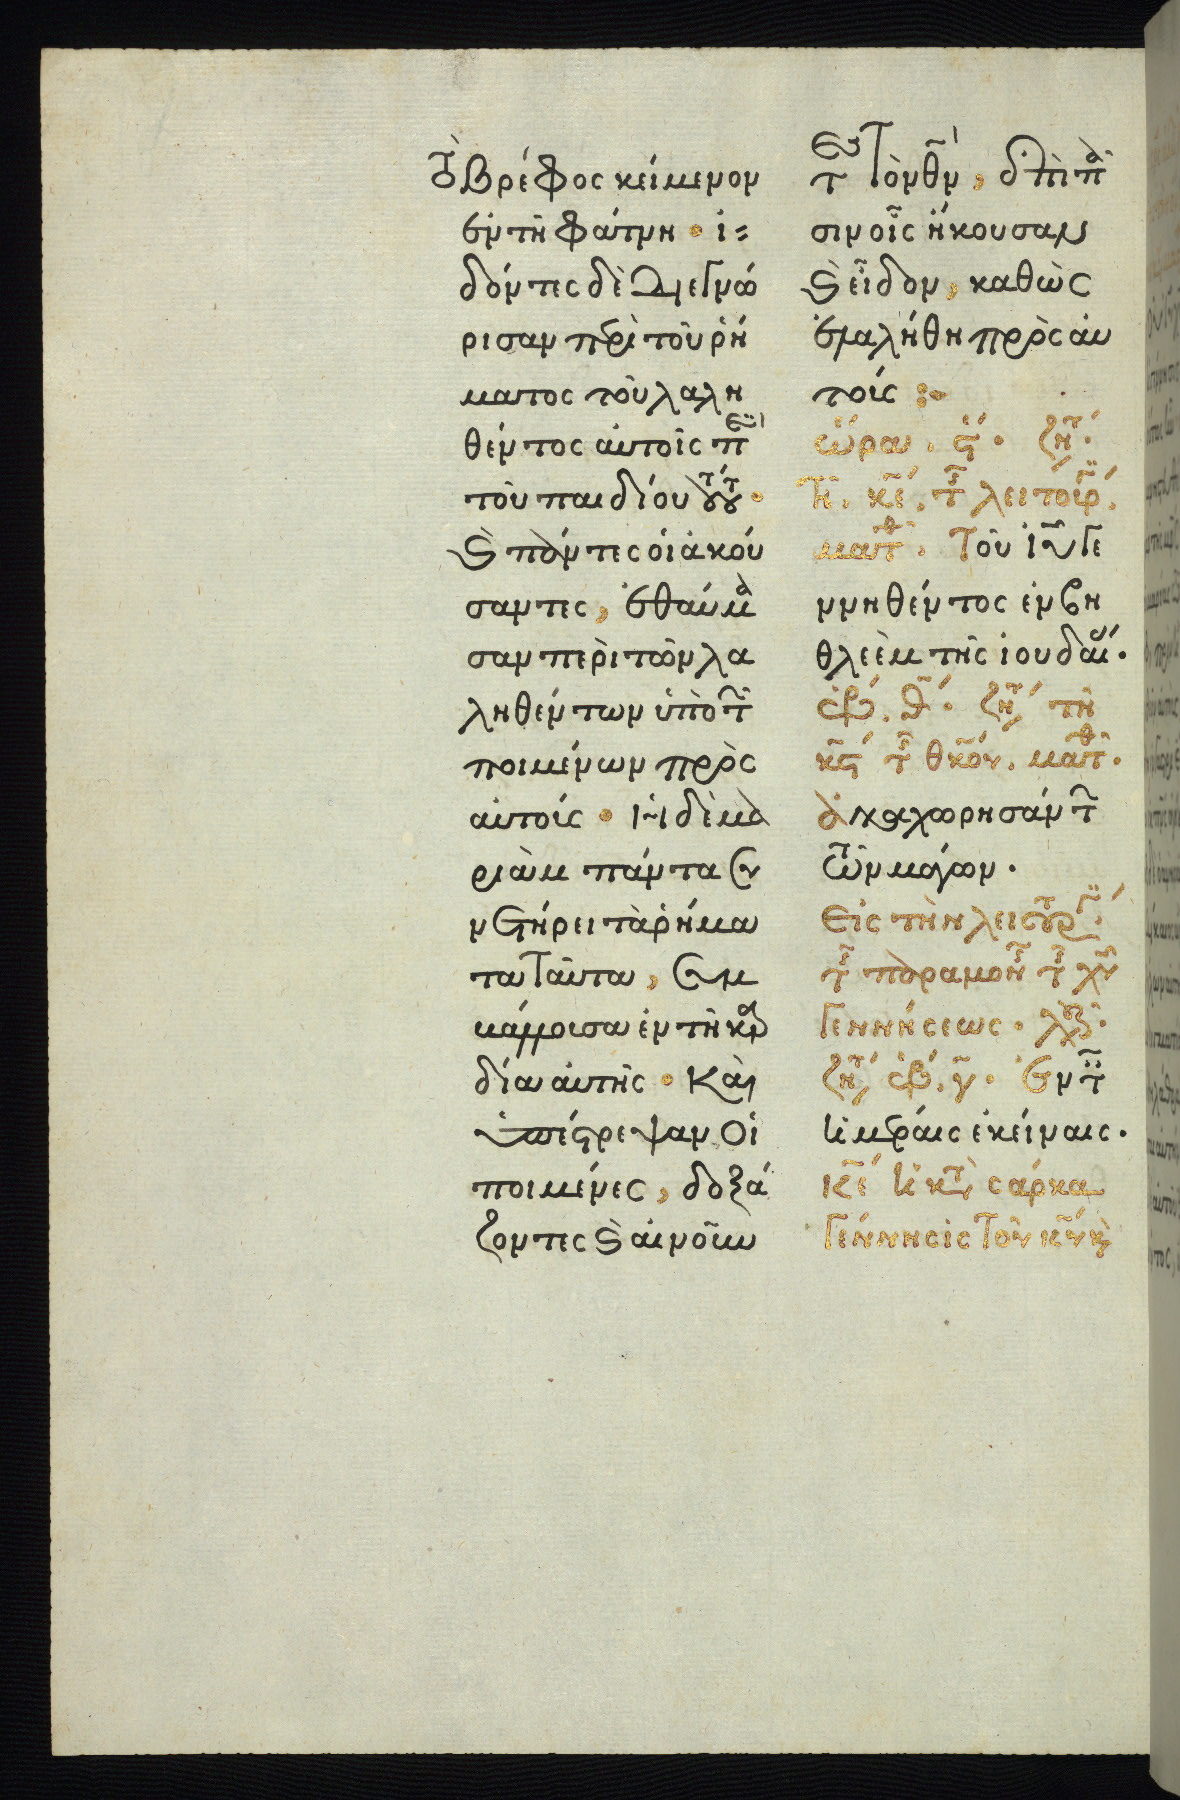 τὸ βρέφος κείμενον
ἐν τῇ φάτνῃ · ἰ
δόντες δὲ διεγνώ
ρισαν περὶ τοῦ ῥή
ματος τοῦ λαλη
θέντος αὐτοῖς π
τοῦ παιδίου τούτ ·
Ϛ πάντες οἱ ἀκού
σαντες, ἐθαύμα
σαν περὶ τῶν λα
ληθέντων ὑπὸ τ
ποιμένων πρὸς
αὐτούς · ἡ δὲ μα
ριὰμ πάντα συ
νετήρει τὰ ῥήμα
τα ταῦτα, συμ
βάλλουσα ἐν τῇ καρ
δία αὐτῆς · Καὶ
ὑπέστρεψαν οἱ
ποιμένες, δοξά
ζοντες Ϛ αἰνοῦν
τες τὸν θν, ἐπὶ πᾶ
σιν οἷς ἤκουσαν
Ϛ εἶδον, καθὼς
ἐλαλήθη πρὸς αὐ
τούς :
ὥρα. ϛ · ζη ·
κε. τ λειτουρ.
ματθ · Τοῦ ιυ γε
ννηθέντος ἐν βη
θλεὲμ τῆς ἰουδαί ·
ἑβ. θ · ζη τῇ
κϛ τ θκου. ματθ ·
ἀναχωρησάντ
τῶν μάγων ·
Εἰς τὴν λειτουργ ·
τ παραμον τ χυ
Γεννήσεως · λ ·
ζη ἑβ. γ · Ἐν τ
ἡμέραις ἐκείναις ·
κε ἡ κατὰ σάρκα
Γέννησις τοῦ κυ κ